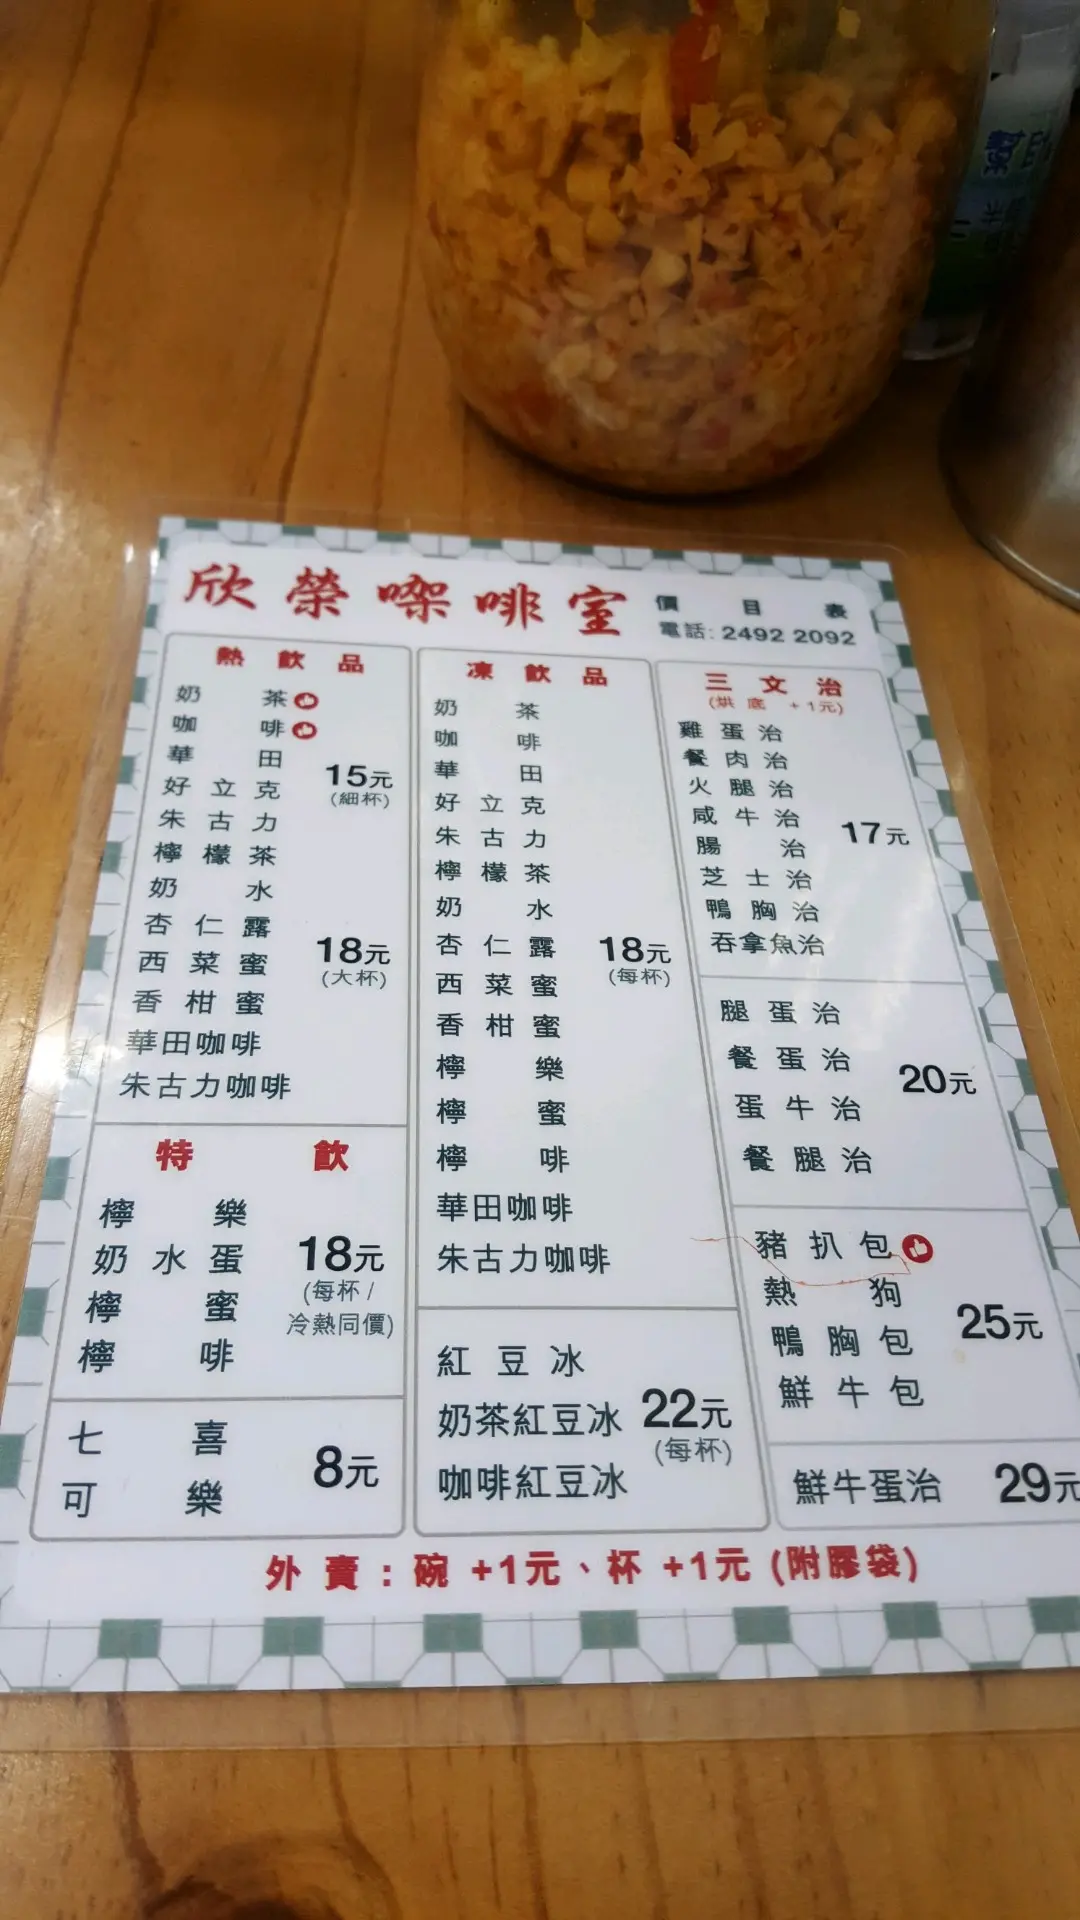 欣榮㗎啡室
價目表
電話: 2492 2092
熱飲品
奶茶
咖啡
華田
好立克
朱古力
檸檬茶
奶水
杏仁露
西菜蜜
香柑蜜
華田咖啡
朱古力咖啡
15元
(細杯)
18元
(大杯)
特飲
檸樂
奶水蛋
檸蜜
檸啡
18元
(每杯 /
冷熱同價)
七喜
可樂
8元
凍飲品
奶茶
咖啡
華田
好立克
朱古力
檸檬茶
奶水
杏仁露
西菜蜜
香柑蜜
檸樂
檸蜜
檸啡
華田咖啡
朱古力咖啡
18元
(每杯)
紅豆冰
奶茶紅豆冰
咖啡紅豆冰
22元
(每杯)
三文治
(烘底 +1元)
雞蛋治
餐肉治
火腿治
咸牛治
腸治
芝士治
鴨胸治
吞拿魚治
17元
腿蛋治
餐蛋治
蛋牛治
餐腿治
20元
豬扒包
熱狗
鴨胸包
鮮牛包
25元
鮮牛蛋治 29元
外賣 : 碗 +1元、杯 +1元 (附膠袋)